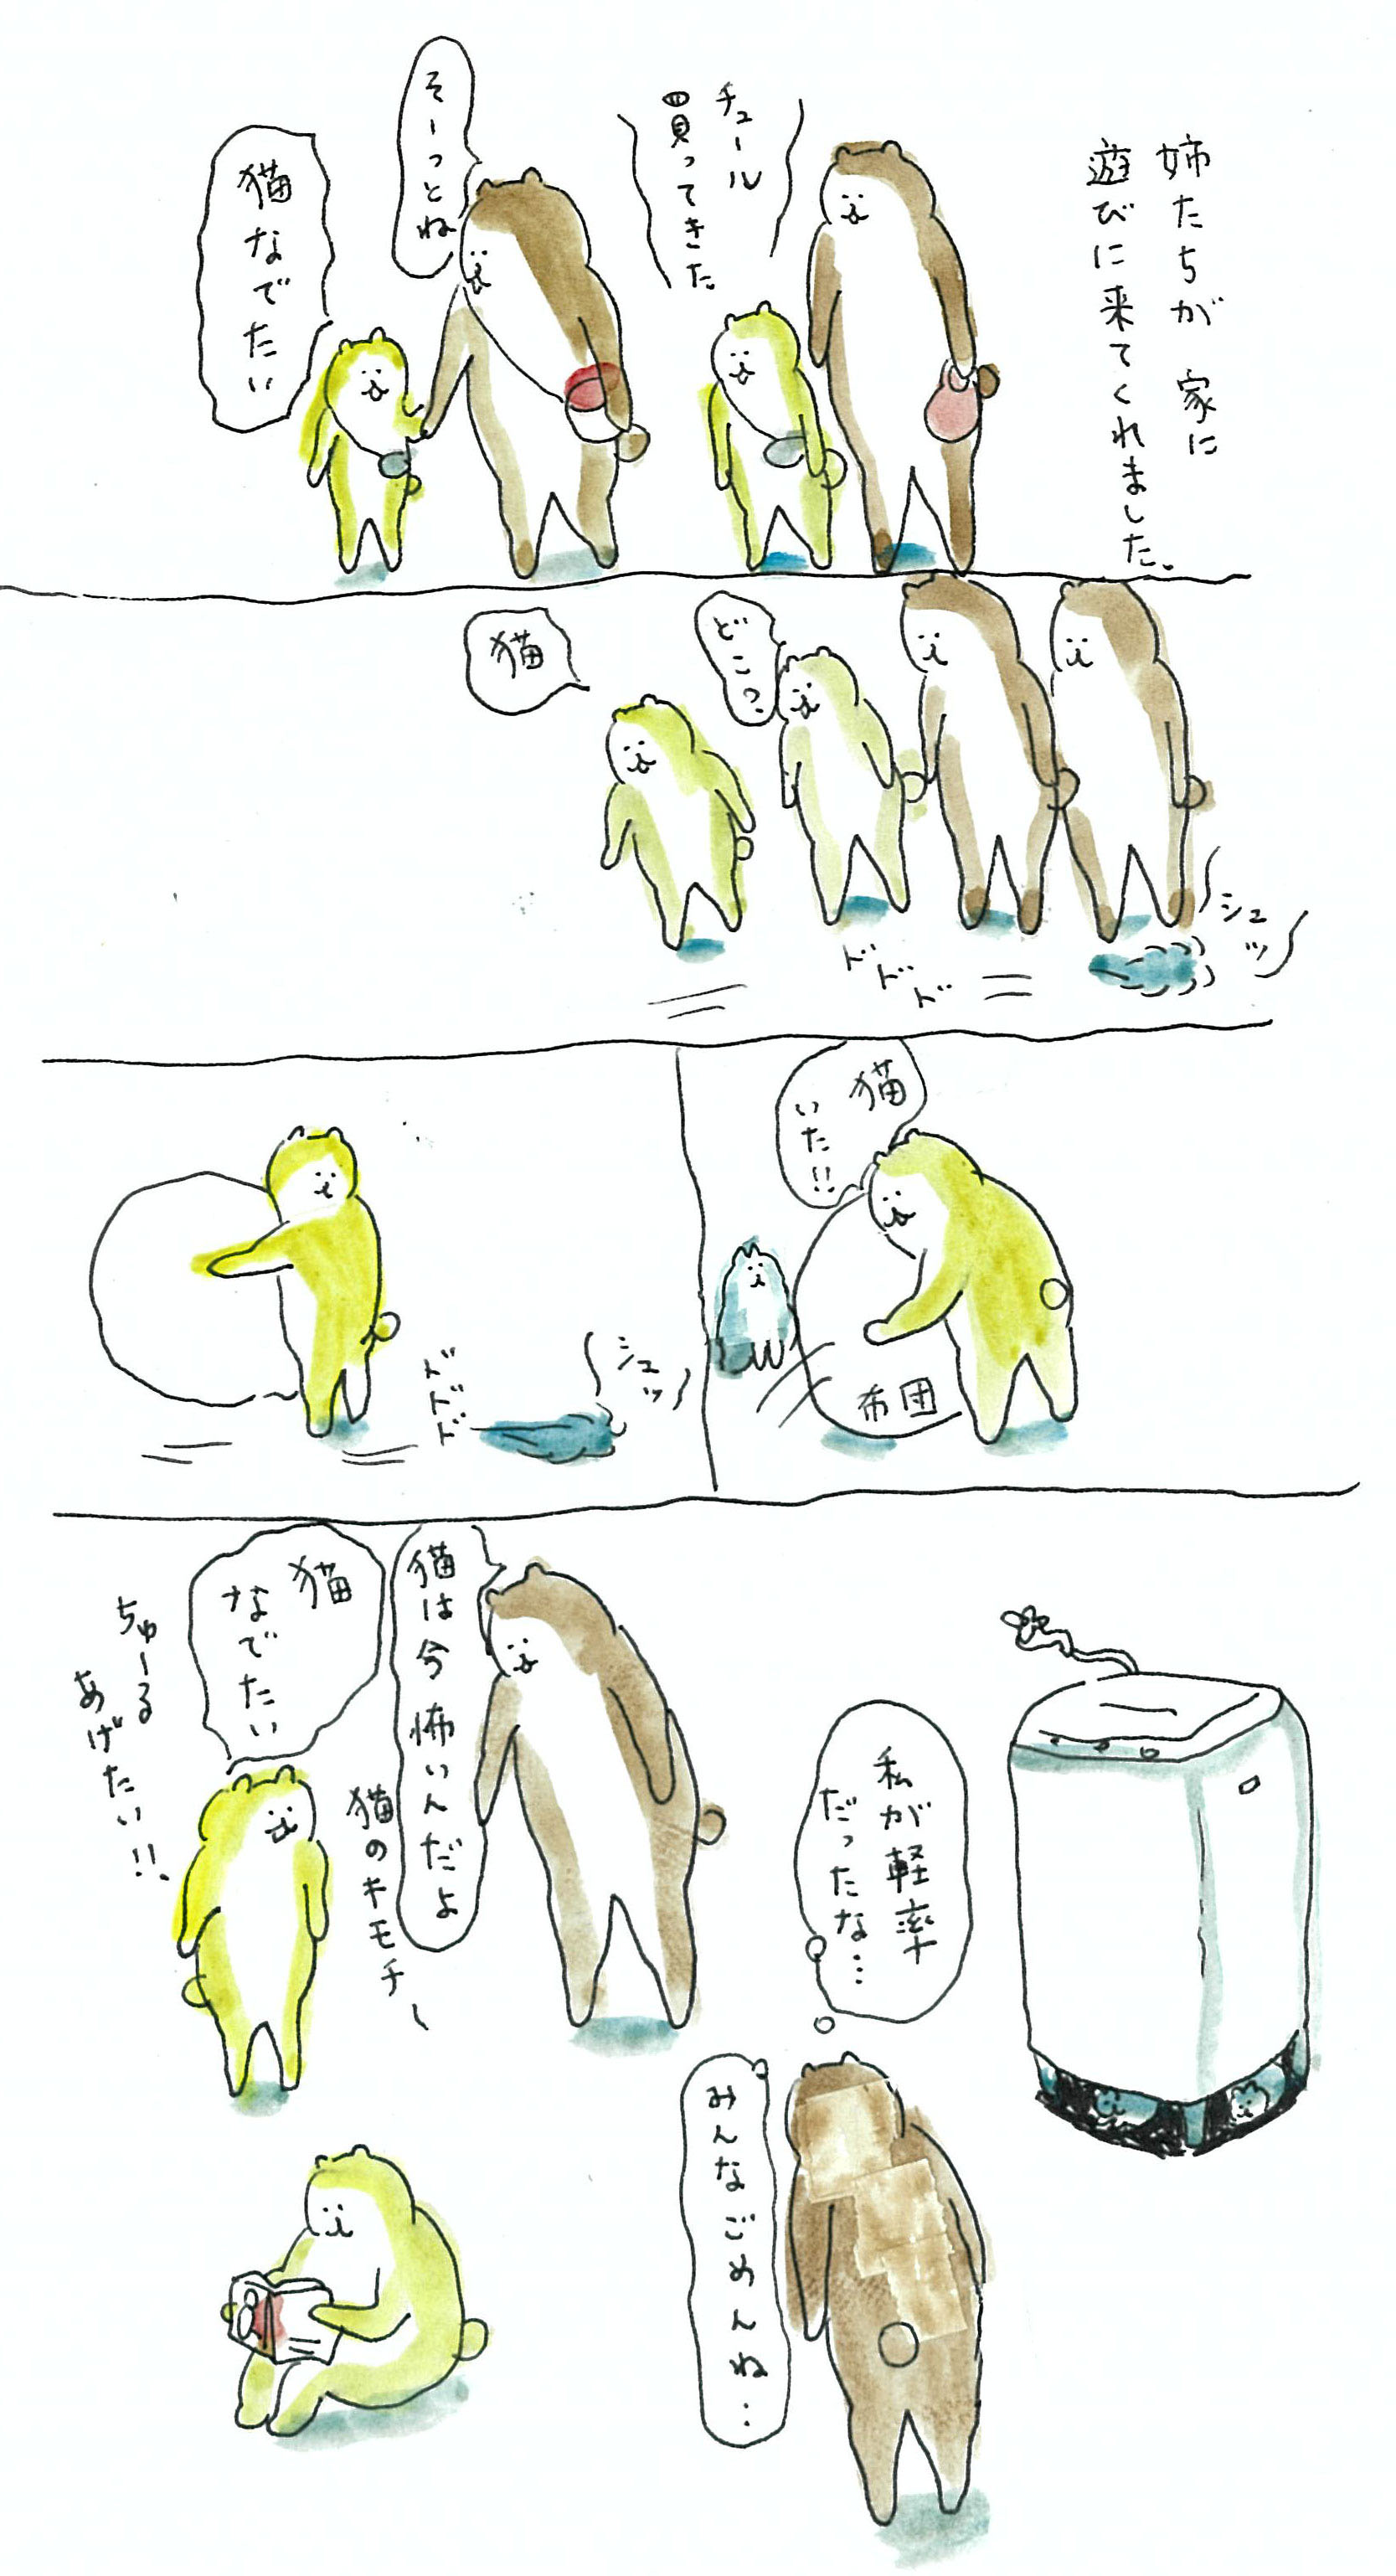 姉たちが 家に
遊びに来てくれました。
チュール
買ってきた
そーっとね
猫なでたい
どこ？
猫
シュッ
ドドド
猫
いた!!
布団
シュッ
ドドド
猫は今怖いんだよ
猫のキモチ
猫
なでたい
ちゅーる
あげたい!!
私が軽率
だったな…
みんなごめんね…